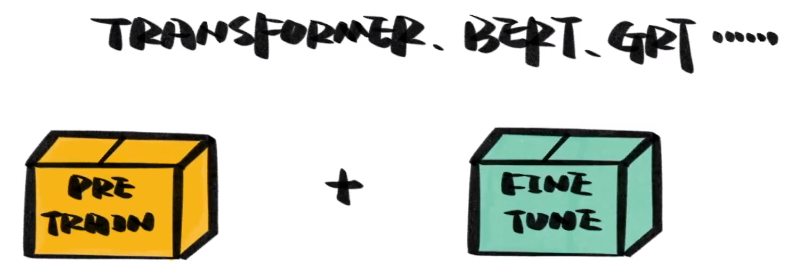 TRANSFORMER、BERT、GRT ......
PRE
TRAIN
+
FINE
TUNE